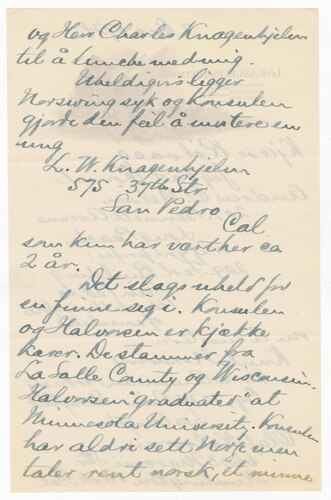 og Herr Charles Knagenhjelm
til å lunche med mig.
Uheldigvis ligger
Norswing syk og konsulen
gjorde den feil å invitere en
ung
L. W. Knagenhjelm
575 - 37th Str.
San Pedro
Cal.
som kun har vært her ca
2 år.
Det slags uheld får
en finne sig i. Konsulen
og Halvorsen er kjække
karer. De stammer fra
La Salle County og Wisconsin.
Halvorsen "graduated" at
Minnesota University. Konsulen
har aldri sett Norge men
taler rent norsk, et minne